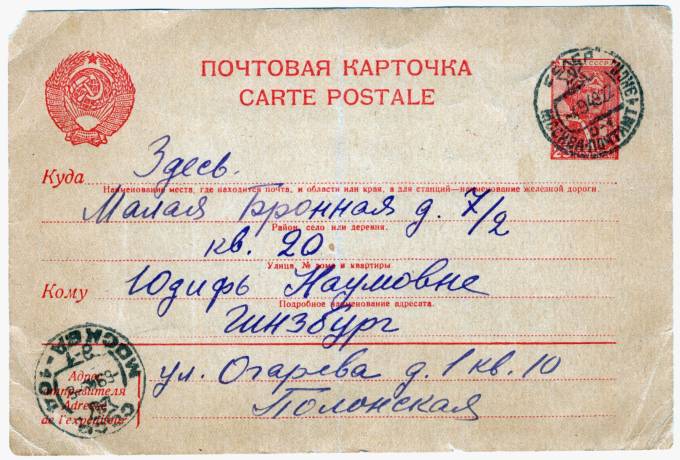 ПОЧТОВАЯ КАРТОЧКА
CARTE POSTALE
СССР
Куда Здесь.
Наименование места, где находится почта, и области или края, а для станций—наименование железной дороги.
Малая Бронная д. 7/2
Район, село или деревня.
кв. 20
Улица, № дома и квартиры
Кому Юдифь Наумовне
Подробное наименование адресата.
Гинзбург
МОСКВА
Адрес отправителя
Adresse de l'expéditeur
ул. Огарева д. 1 кв. 10
Полонская